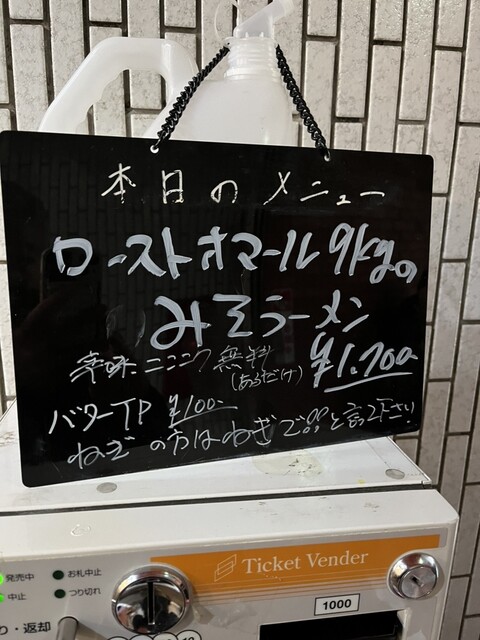 本日のメニュー
ローストオマール9kgの
みそラーメン
辛味 ニンニク 無料
(あるだけ)
¥1.700-
バターTP ¥100-
ねぎの方はねぎで!!と言って下さい
発売中
お札中止
中止
つり切れ
り・返却
Ticket Vender
1000